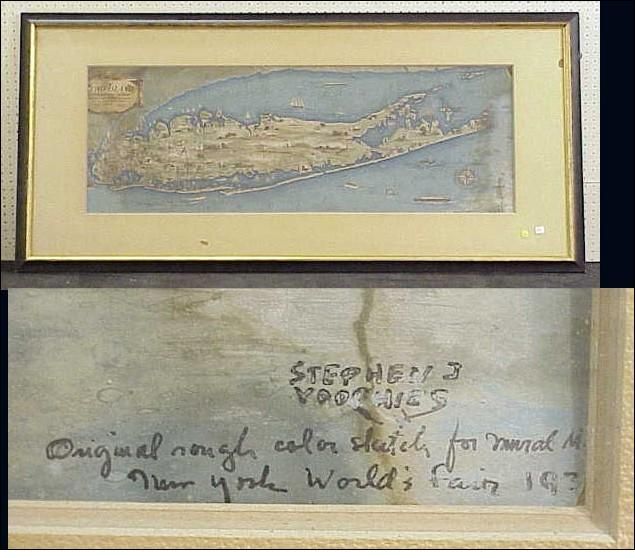 LONG ISLAND
STEPHEN J
VOORHIES
Original rough color sketch for mural M
New York World's Fair 193